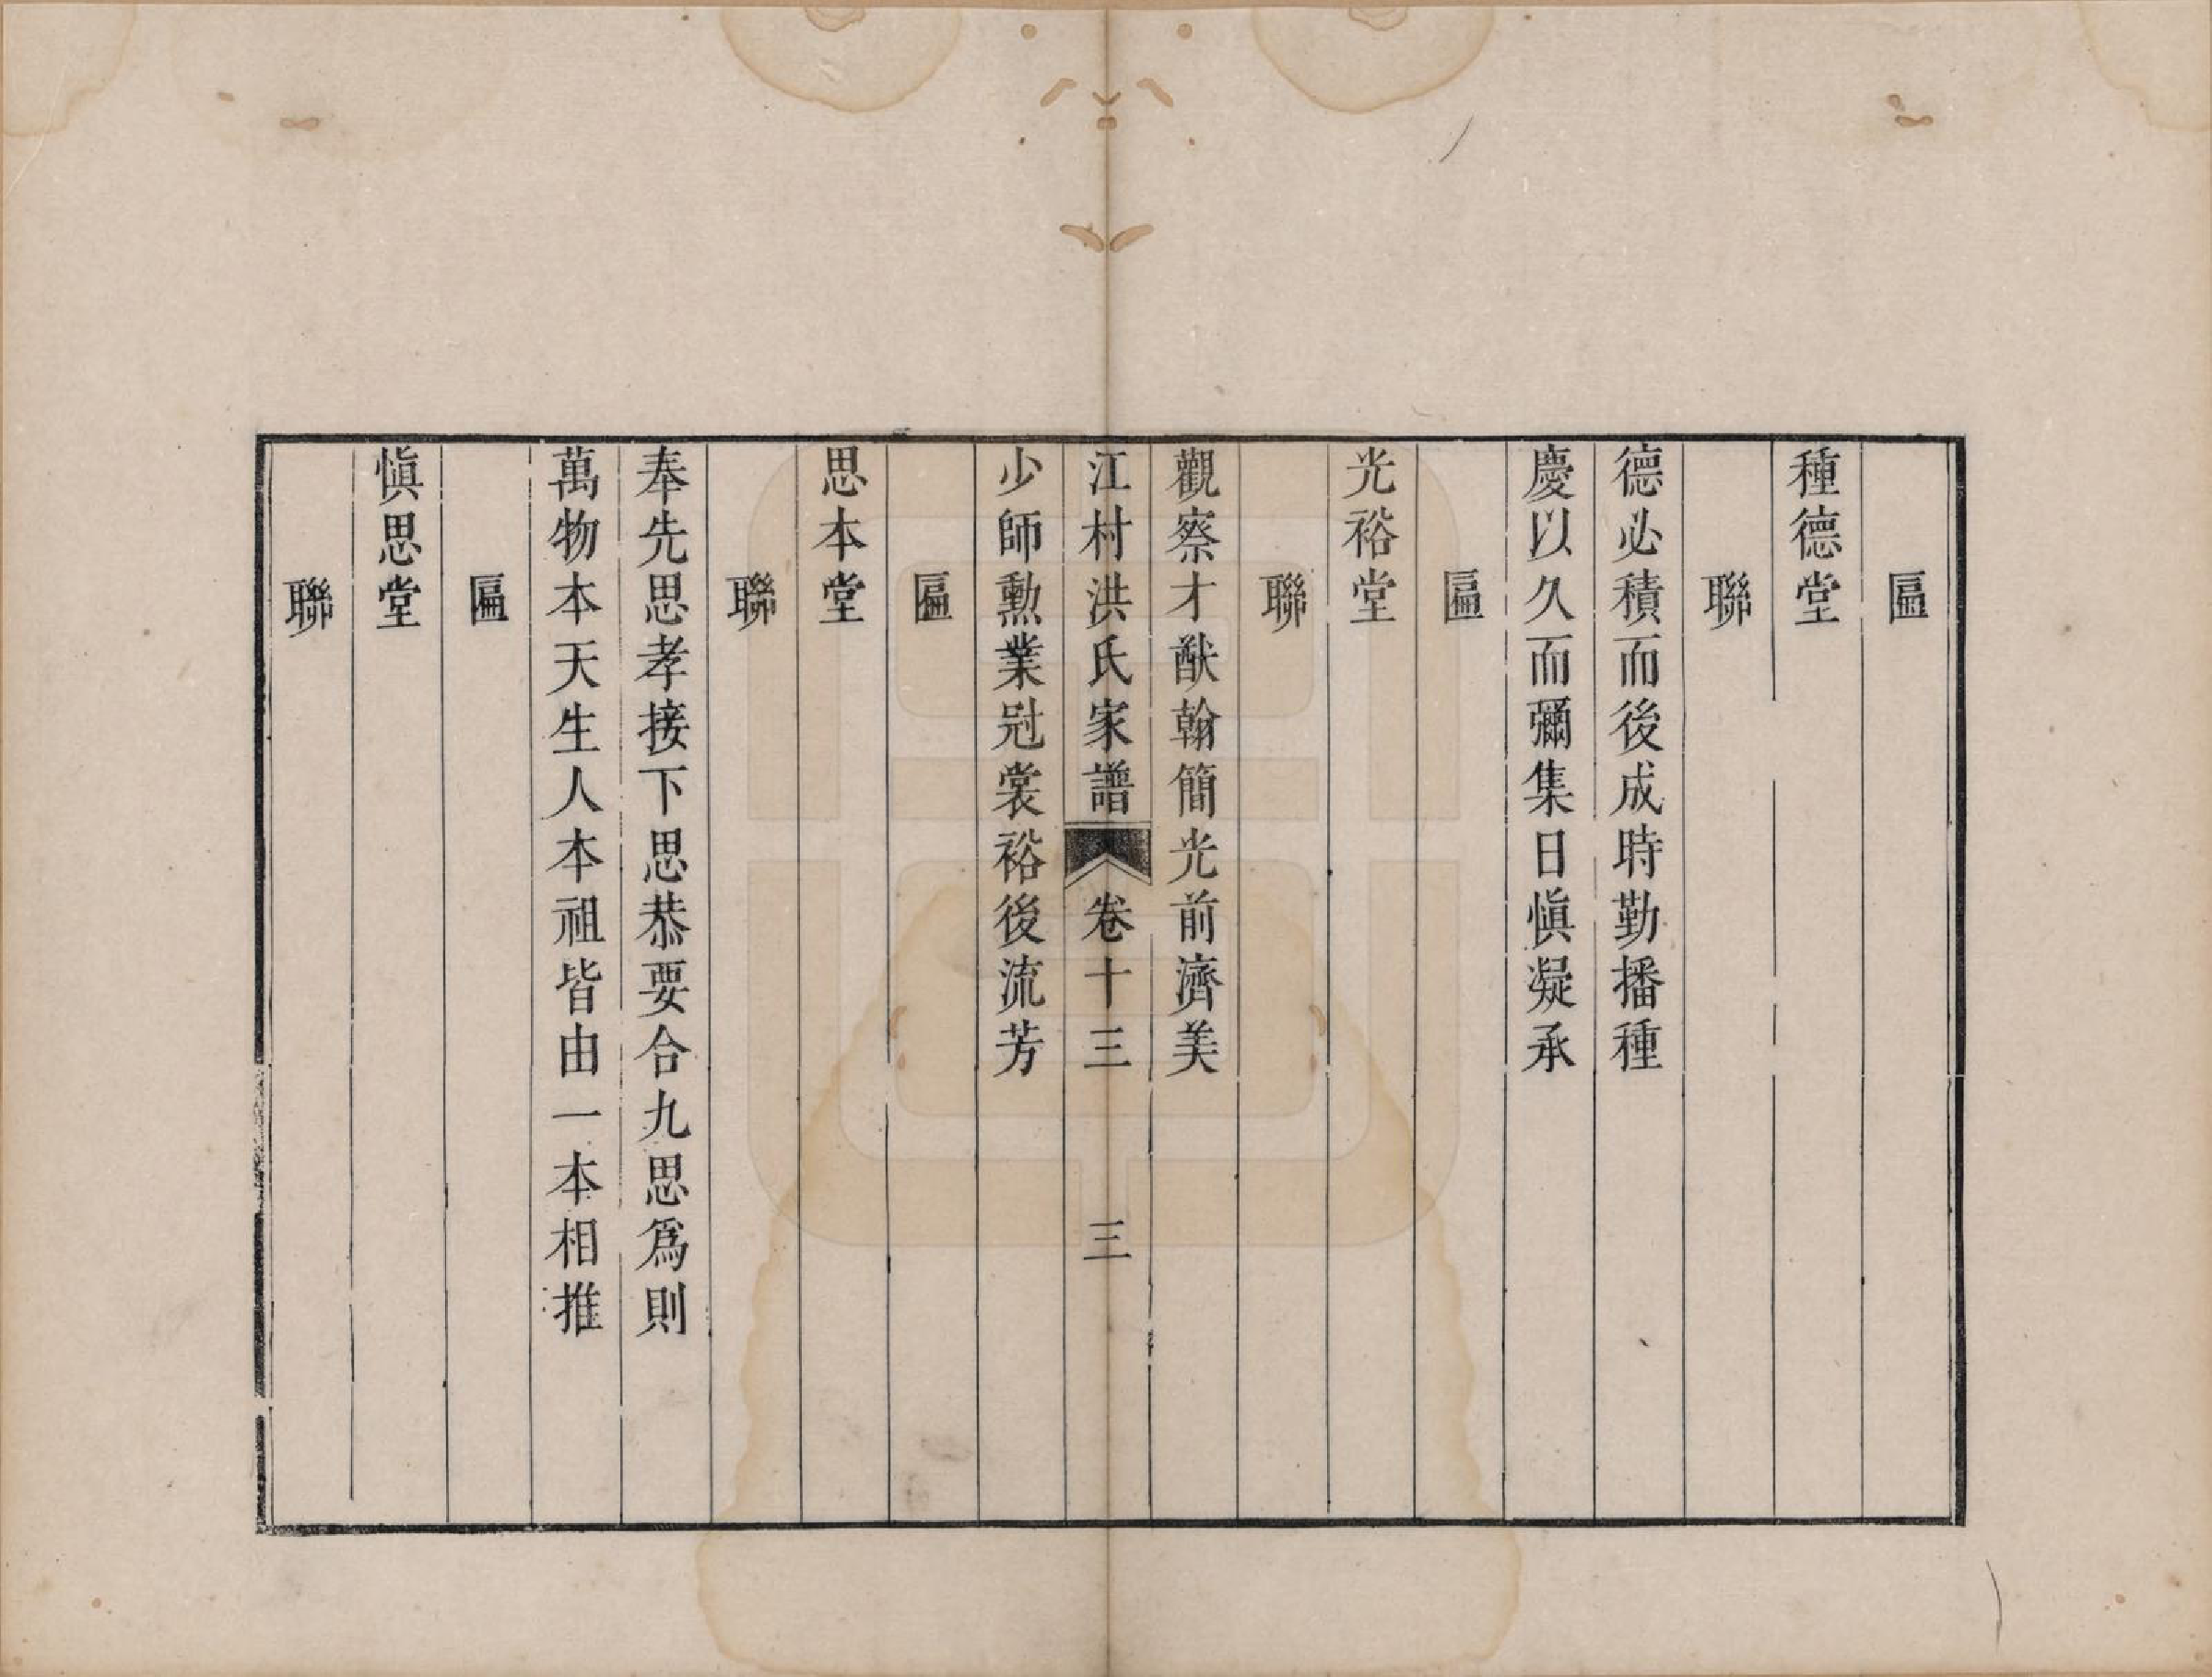 匾
種德堂
聯
德必積而後成時勤播種
慶以久而彌集日愼凝承
匾
光裕堂
聯
觀察才猷翰簡光前濟美
江村洪氏家譜 卷十三 三
少師勲業冠裳裕後流芳
匾
思本堂
聯
奉先思孝接下思恭要合九思爲則
萬物本天生人本祖皆由一本相推
匾
愼思堂
聯